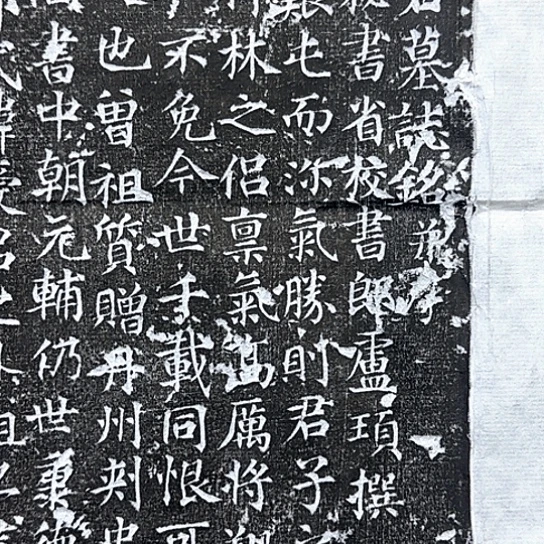 墓誌銘并序
書省校書郎盧頊撰
屯而泳氣勝則君子
林之侶稟氣高厲將
不免今世千載同恨可
也曾祖質贈丹州刺史
書中朝元輔仍世秉德